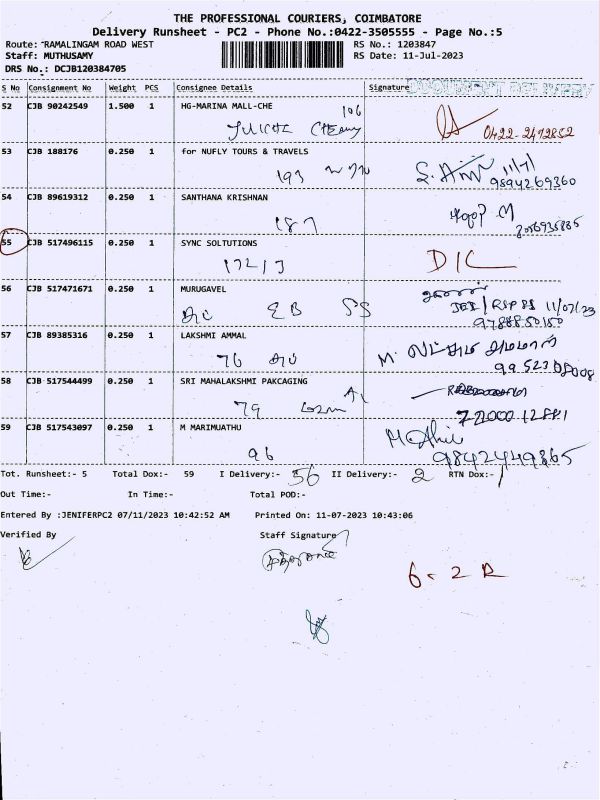 THE PROFESSIONAL COURIERS, COIMBATORE
Delivery Runsheet - PC2 - Phone No.:0422-3505555 - Page No.:5
Route: RAMALINGAM ROAD WEST RS No.: 1203847
Staff: MUTHUSAMY RS Date: 11-Jul-2023
DRS No.: DCJB120384705
S No Consignment No Weight PCS Consignee Details Signature
52 CJB 90242549 1.500 1 HG-MARINA MALL-CHE
106
0422-2472852
53 CJB 188176 0.250 1 for NUFLY TOURS & TRAVELS
193 11/7/
9894269360
54 CJB 89619312 0.250 1 SANTHANA KRISHNAN
187
55 CJB 517496115 0.250 1 SYNC SOLTUTIONS
D/C
56 CJB 517471671 0.250 1 MURUGAVEL
EB 11/07/23
57 CJB 89385316 0.250 1 LAKSHMI AMMAL
76 M. லட்சுமி அம்மாள்
58 CJB 517544499 0.250 1 SRI MAHALAKSHMI PAKCAGING
79
59 CJB 517543097 0.250 1 M MARIMUATHU
96 9842449865
Tot. Runsheet:- 5 Total Dox:- 59 I Delivery:- 56 II Delivery:- 2 RTN Dox:- 1
Out Time:- In Time:- Total POD:-
Entered By :JENIFERPC2 07/11/2023 10:42:52 AM Printed On: 11-07-2023 10:43:06
Verified By Staff Signature